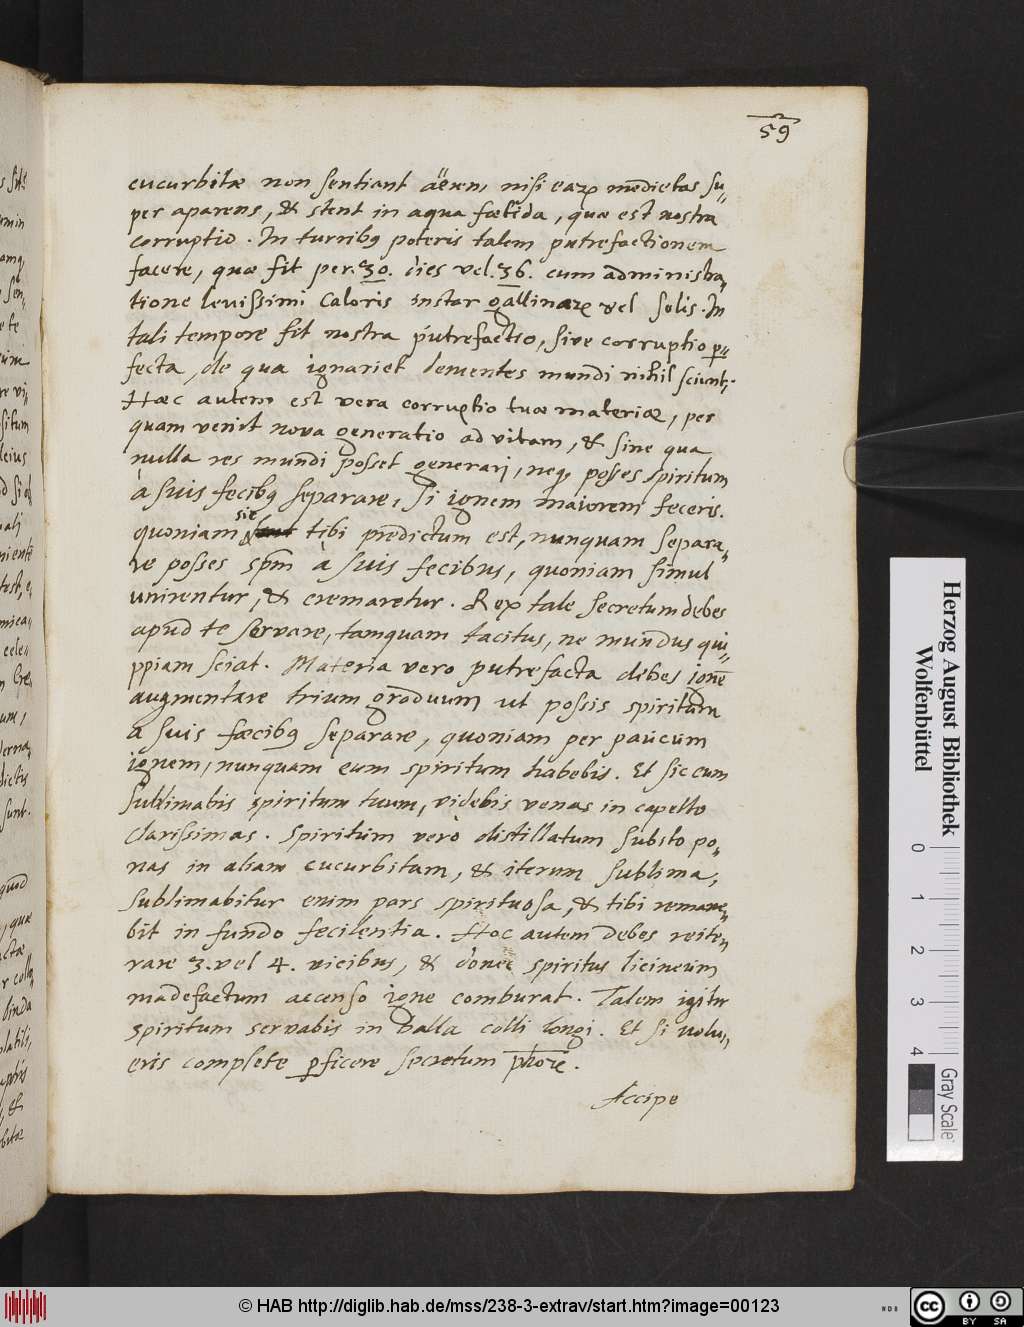 59
cucurbitæ non sentiant äerem, nisi earꝝ medietas su„
per aparens, & stent in aqua fœtida, quæ est nostra
corruptio. In turribꝯ poteris talem putrefactionem
facere, quæ fit per. 30. dies vel. 36. cum administra„
tione levissimi Caloris instar gallinarꝝ vel solis. In
tali tempore fit nostra putrefactio, sive corruptio ꝑ„
fecta, de qua ignari et dementes mundi nihil sciunt,.
Hæc autem est vera corruptio tuæ materiæ, per
quam venit nova generatio ad vitam, & sine qua
nulla res mundi posset generari, neqꝫ posses spiritum
à suis fecibꝯ separare, si ignem maiorem feceris.
quoniam sic tibi prædictum est, nunquam separa„
re posses spm̄ à suis fecibus, quoniam simul
unirentur, & cremaretur. Rex tale secretum debes
apud te servare, tamquam tacitus, ne mundus qui„
ppiam sciat. Materia vero putrefacta debes ignē
augmentare trium graduum ut possis spiritum
a suis fæcibꝯ separare, quoniam per paucum
ignem, nunquam eum spiritum habebis. Et sic cum
sublimabis spiritum tuum, videbis venas in capello
clarissimas. Spiritum verò distillatum subito po„
nas in aliam cucurbitam, & iterum sublima,
sublimabitur enim pars spirituosa, & tibi remane„
bit in fundo fecilentia. Hoc autem debes reite„
rare 3. vel 4. vicibus, & donec spiritus licineum
madefactum accenso igne comburat. Talem igitur
spiritum servabis in balla colli longi. Et si volu„
eris complete ꝑficere secretum phōrē.
Accipe
Herzog August Bibliothek
Wolfenbüttel
0 1 2 3 4
Gray Scale
© HAB http://diglib.hab.de/mss/238-3-extrav/start.htm?image=00123
cc BY SA